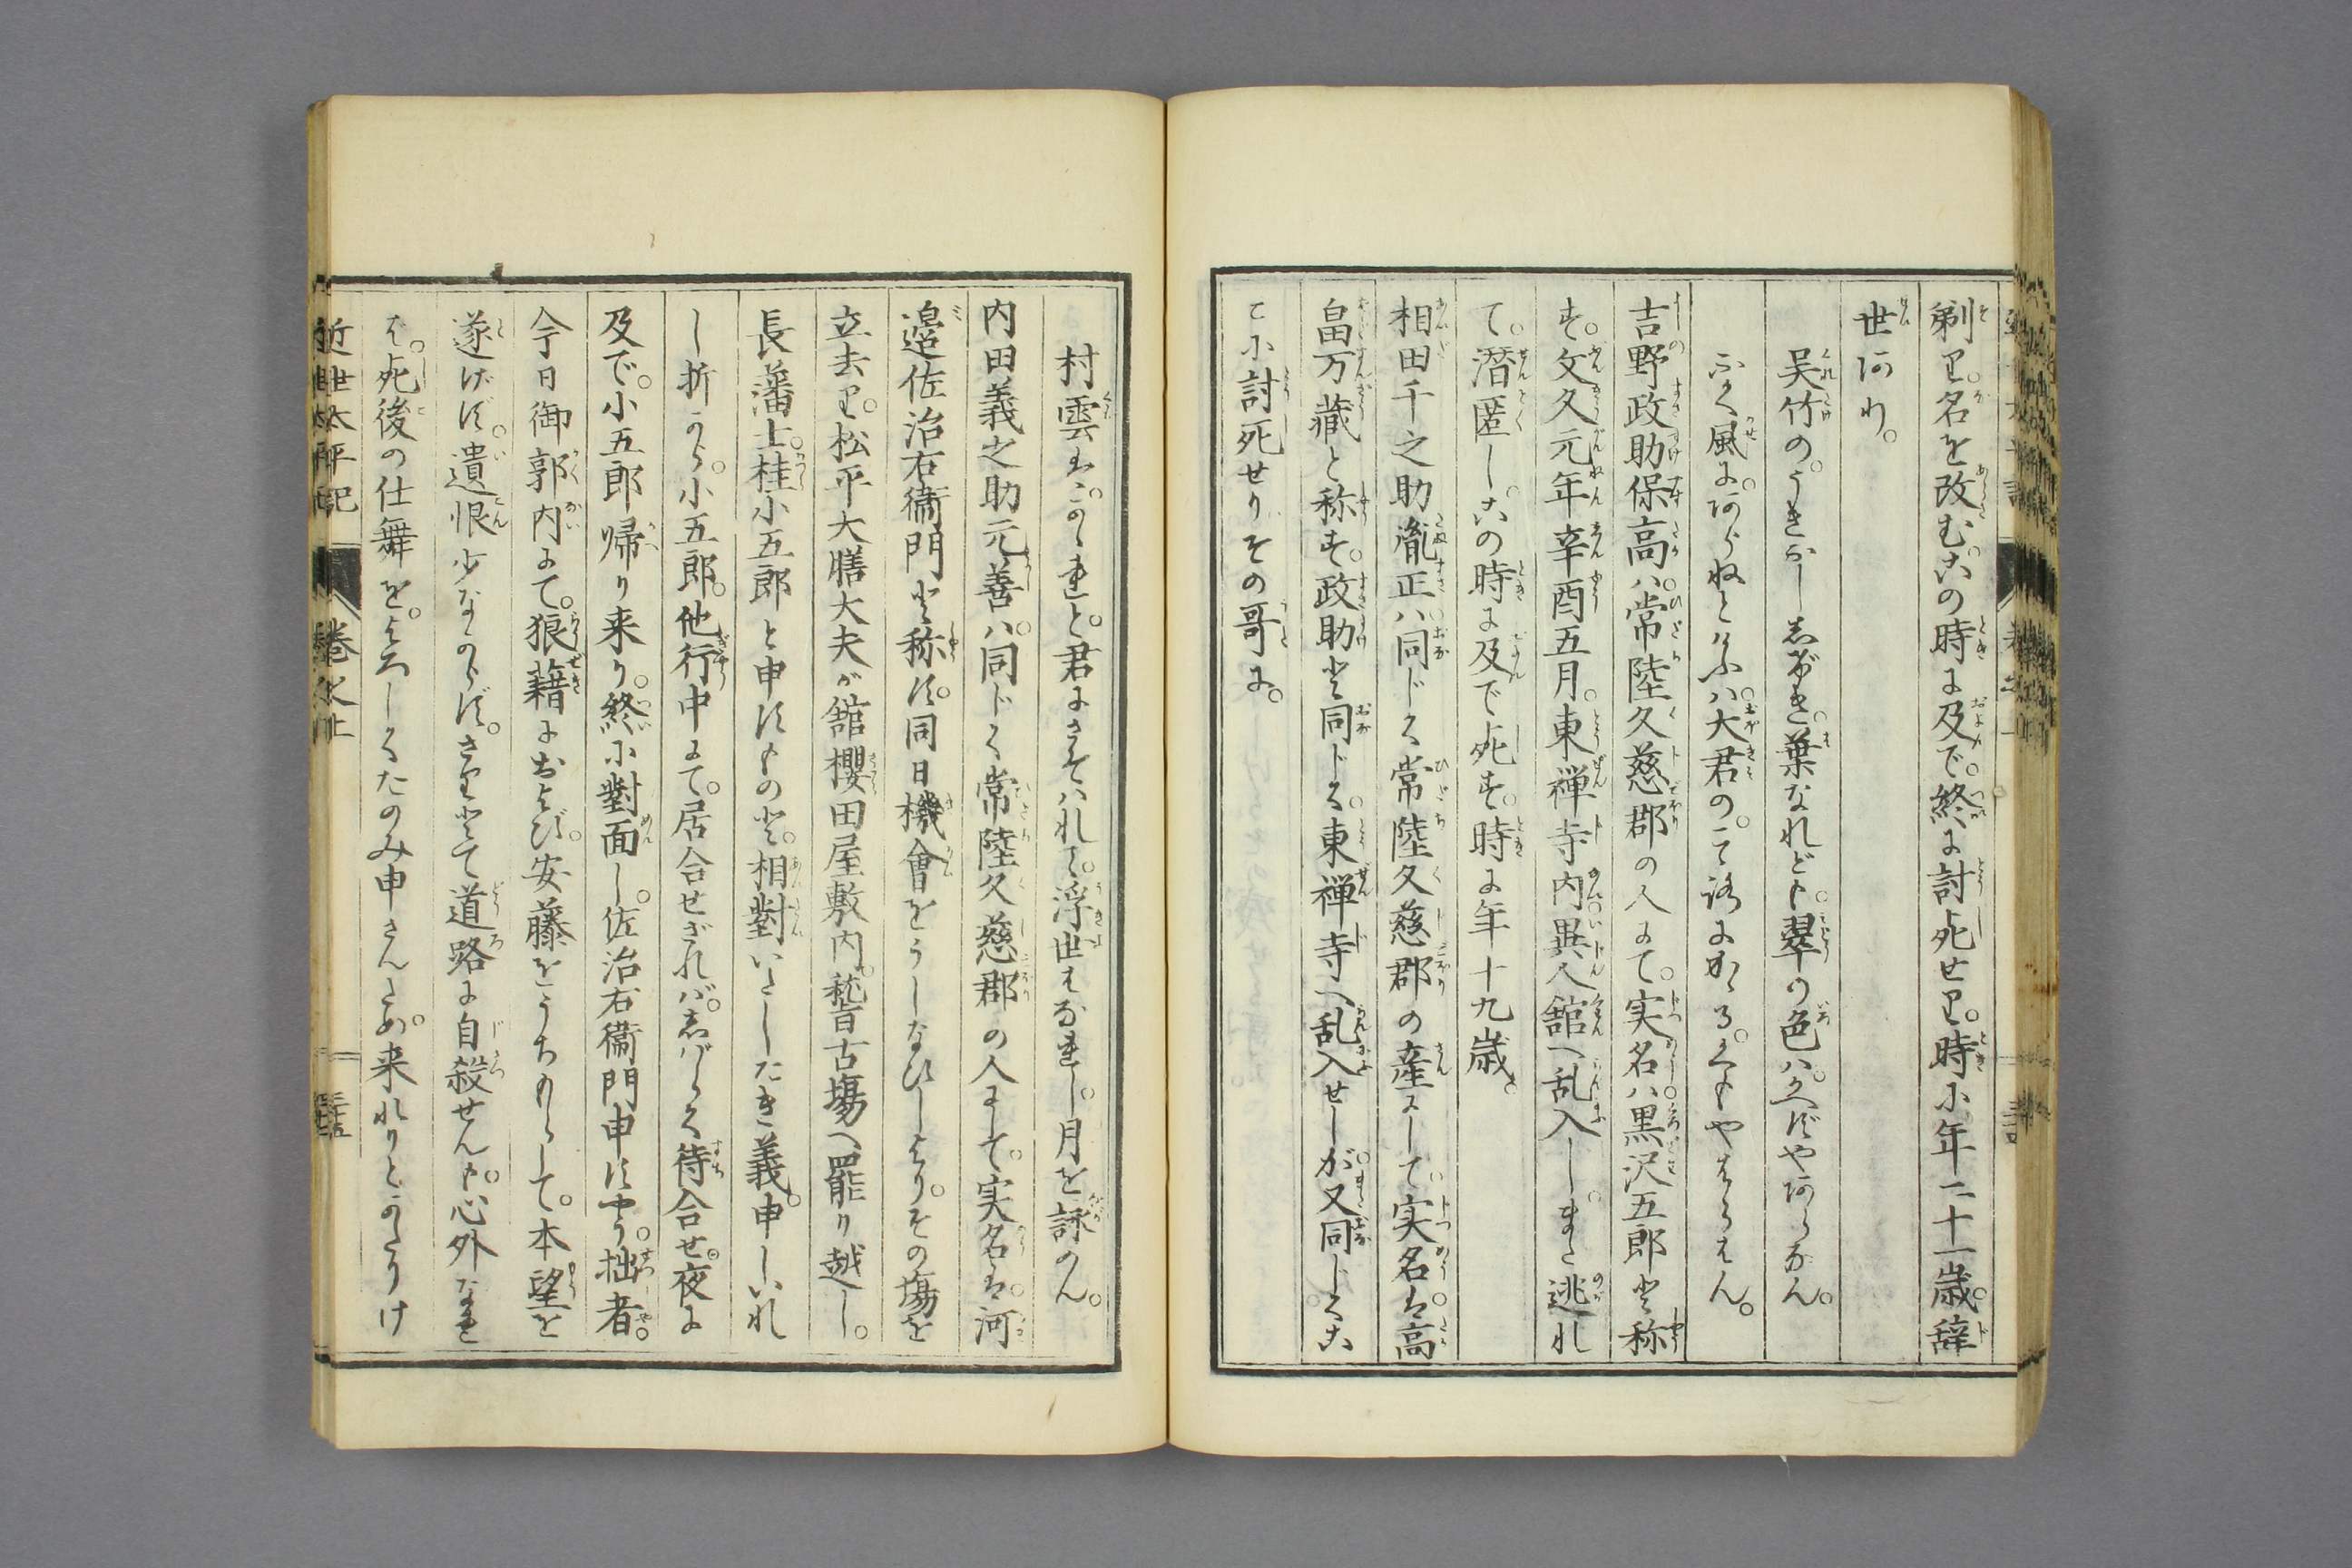 剃り。名を改む。此の時に及で。終に討死せり。時に年二十一歳。辞
世あり。
呉竹の。うきふししげき。葉なれども。翠の色ハ。かへずやあらなん。
ふく風に。あらねとけふハ。大君の。こころにかかる。くもやはらはん。
吉野政助保高ハ。常陸久慈郡の人にて。実名ハ。黒沢五郎と称
す。文久元年辛酉五月。東禅寺内異人舘へ乱入し。また逃れ
て。潜匿し。此の時に及で死す。時に年十九歳。
相田千之助胤正ハ。同じく常陸久慈郡の産にして。実名は。高
畠万蔵と称す。政助と同じく。東禅寺へ乱入せしが。又同じくこ
こに討死せりその哥に。
村雲に。かくれと。君にさそはれて。浮世はなれし。月を詠めん。
内田義之助元善ハ。同じく常陸久慈郡の人にして。実名は。河
邉佐治右衛門と称す。同日機會をうしなひしより。その場を
立去り。松平大膳大夫が舘櫻田屋敷内。稽古場へ罷り越し。
長藩士。桂小五郎と申すものと。相對いたしたき義。申しいれ
し折から。小五郎。他行中にて。居合せざれバ。志ばらく待合せ。夜に
及で。小五郎帰り来り。終に對面し。佐治右衛門申すやう。拙者。
今日御郭内にて。狼藉におよび。安藤をうちもらして。本望を
遂げず。遺恨少なからず。さりとて道路に自殺せんも。心外なれ
ば。死後の仕舞を。よろしくたのみ申さんため。来れりとかたりけ
近世太平記 巻之上 三十五